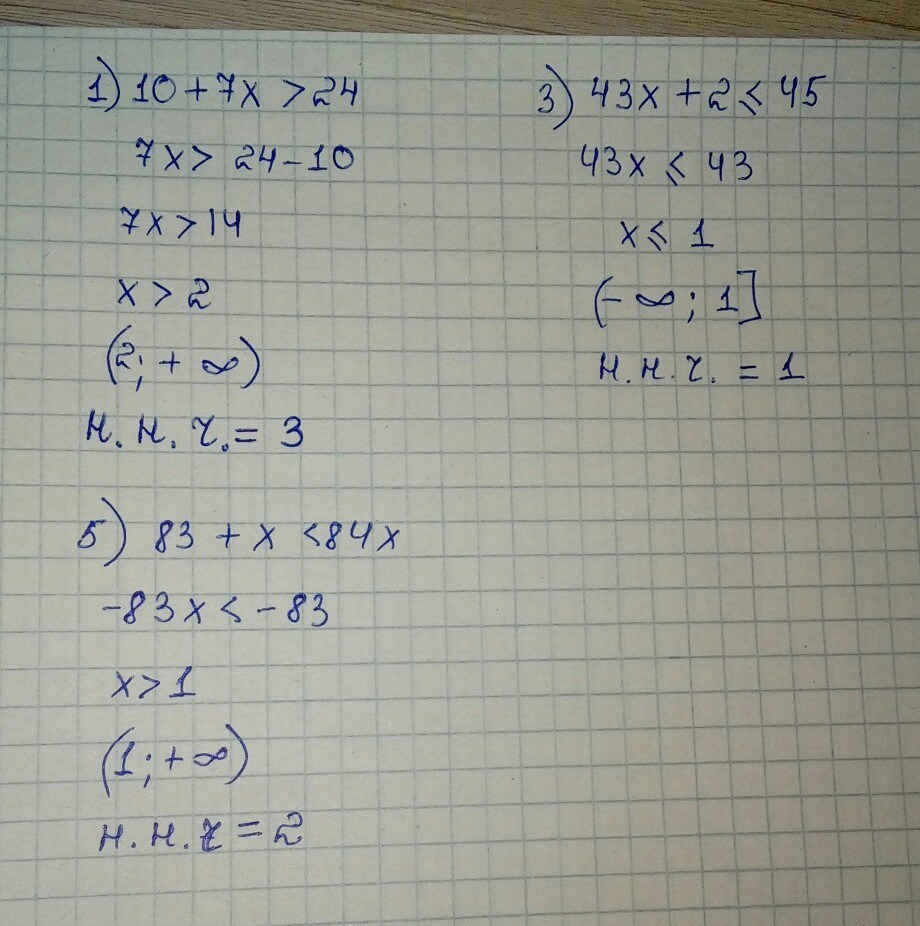 1) 10 + 7x > 24
7x > 24 - 10
7x > 14
x > 2
(2; + ∞)
н. н. ч. = 3
3) 43x + 2 ⩽ 45
43x ⩽ 43
x ⩽ 1
(- ∞; 1]
н. н. ч. = 1
5) 83 + x < 84x
-83x < - 83
x > 1
(1; + ∞)
н. н. ч = 2